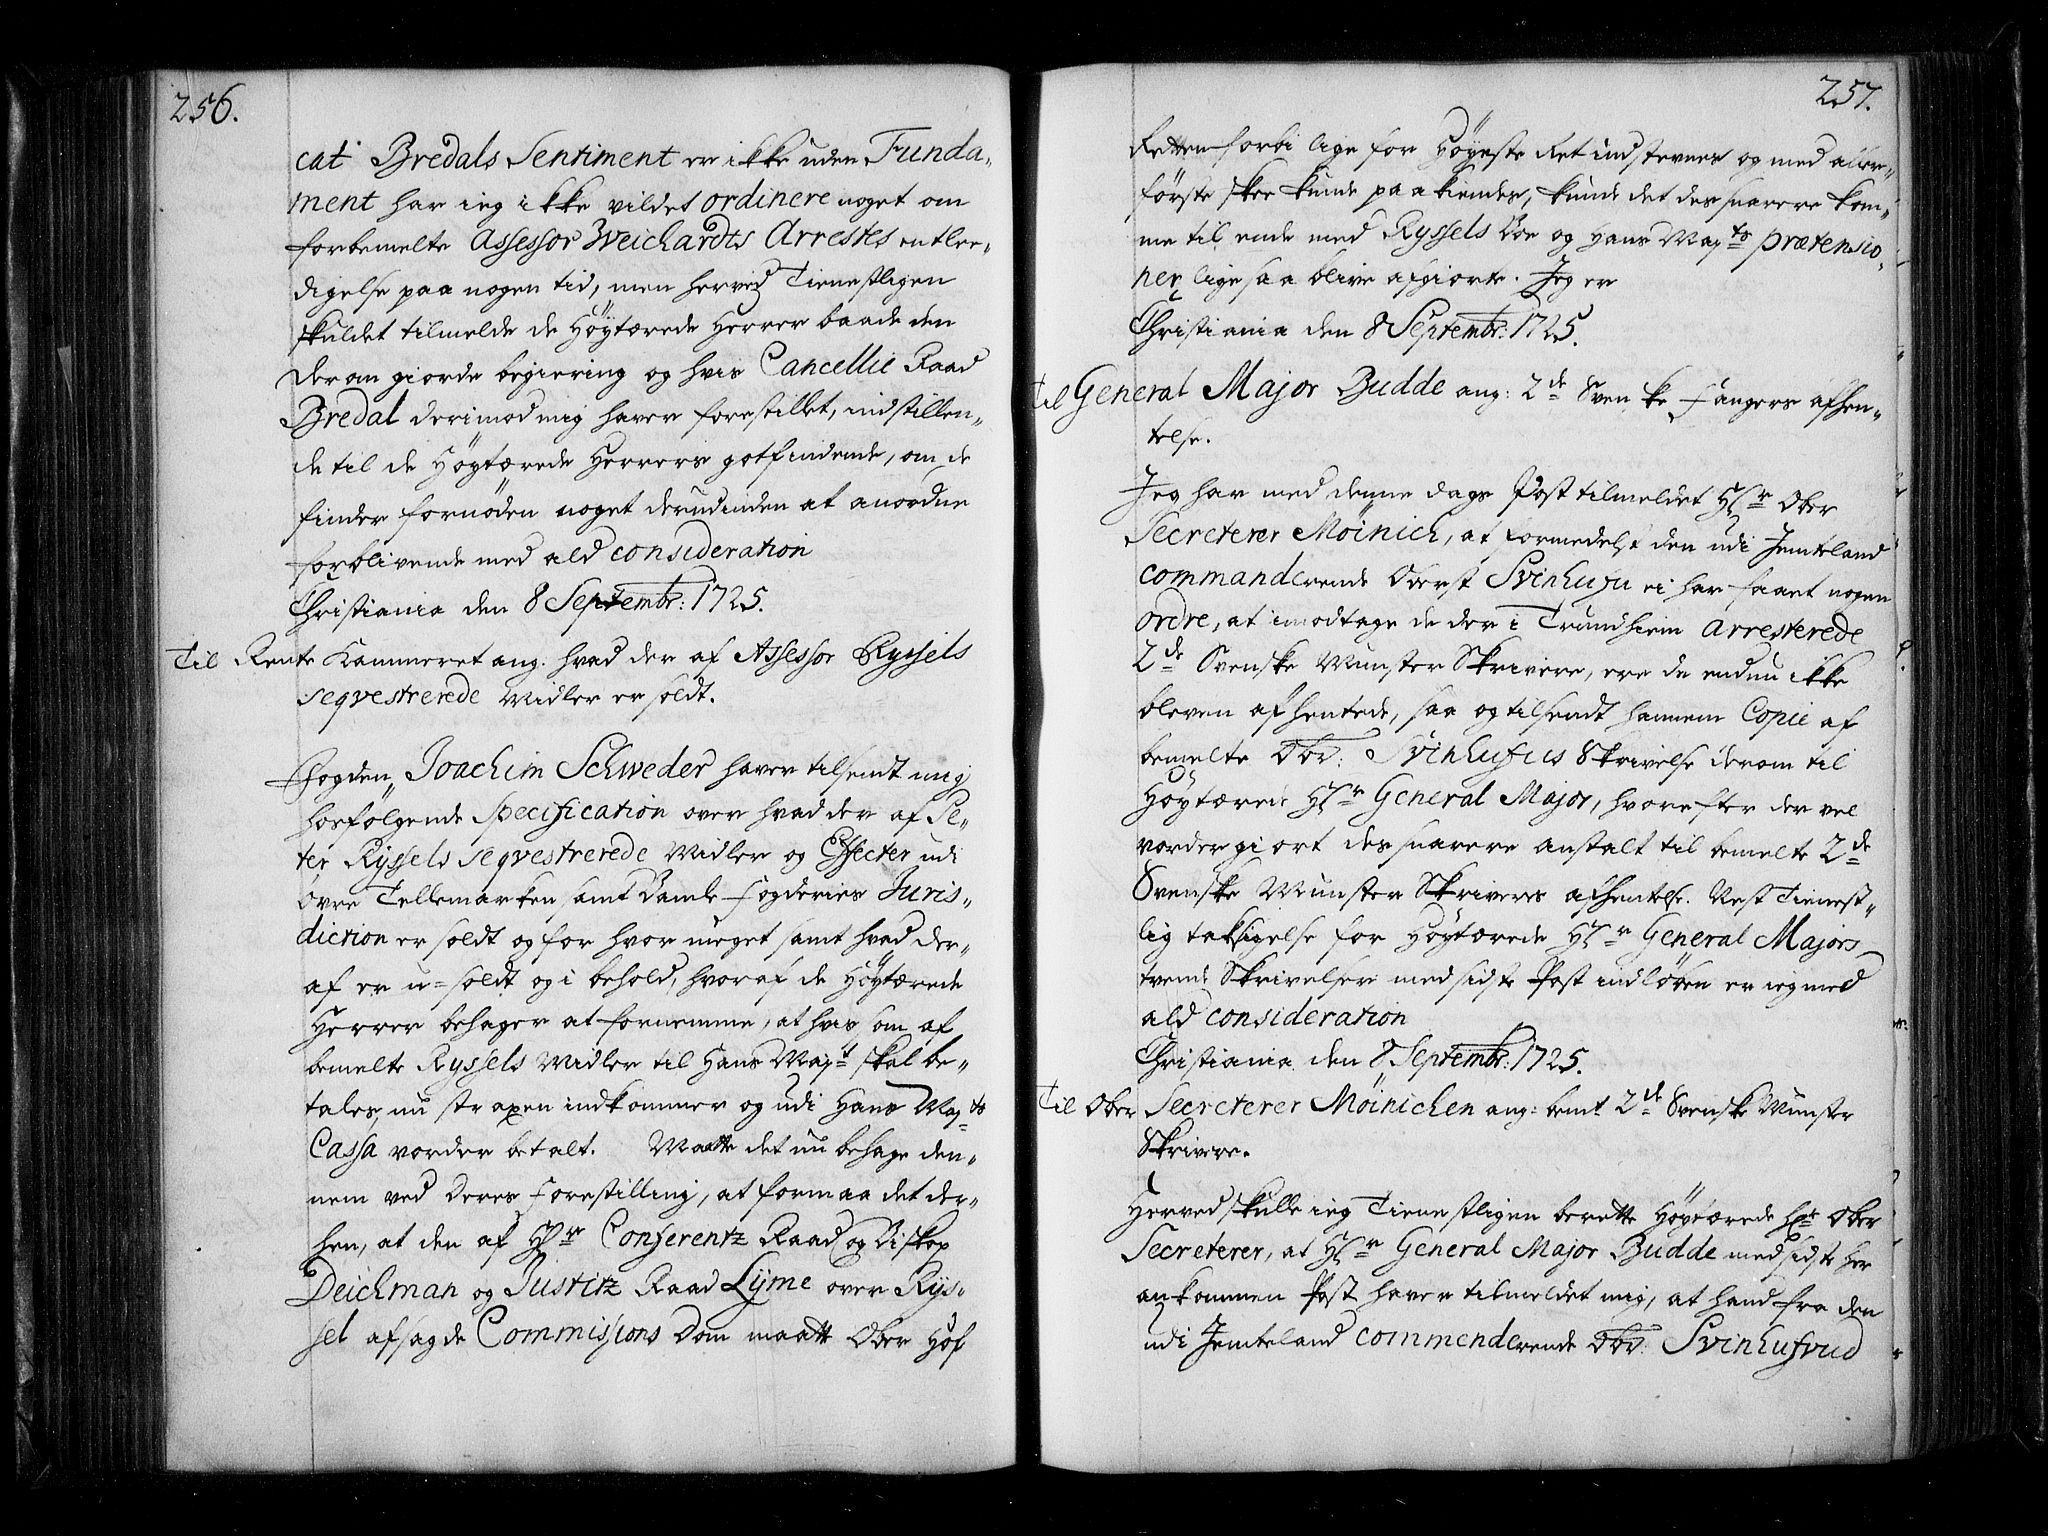 256.
cat Bredals Sentiment er ikke uden Funda-
ment har ieg ikke vildet ordinere noget om
forbemelte Assessor Weichardts Arrestes entlee-
digelse paa nogen tid, men herved Tienestligen
skuldet tilmelde de Høytærede Herrer baade den
derom giorde begiering og hvis Cancellie Raad
Bredal derimod mig haver forestillet, indstillen-
de til de Høytærede Herrers gotfindende, om de
finder fornøden noget derudinden at anordne
forblivende med ald consideration
Christiania den 8 Septembr: 1725.
Til Rente Kammeret ang: hvad der af Assessor Ryssels
seqvestrerede Midler er soldt.
Fogden Joachim Schweder haver tilsendt mig
hosfølgende specification over hvad der af Pe-
ter Ryssels seqvestrerede Midler og Effecter udi
Øvre Tellemarken samt Bamle Fogderies Juris-
diction er soldt og for hvor meget samt hvad der-
af er u-soldt og i behold, hvoraf de Høytærede
Herrer behager at fornemme, at hvis som af
bemelte Ryssels Midler til Hans Mayt skal be-
tales, nu straxen indkommer og udi Hans Mayts
Cassa vorder betalt. Maatte det nu behage den-
nem ved deres Forestilling, at formaa det der-
hen, at den af Hr Conferentz Raad og Biskop
Deichman og Justitz Raad Lyme over Rys-
sel afsagde Commissions Dom maatte Ober Hof
257.
Retten forbi lige for Høyeste Ret indstevnes og med aller-
første skee kunde paakiendes, kunde det des snarere kom-
me til ende med Ryssels Boe og Hans Mayts prætensio-
ner lige saa blive afgiorte. Jeg er
Christiania den 8 Septembr: 1725.
Til General Major Budde ang: 2de Svenske Fangers afhen-
telse.
Jeg har med denne dags Post tilmeldet Hr Ober
Secreterer Möinich, at formedelst den udi Jemteland
commanderende Oberst Svinhufu ei har faaet nogen
ordre, at imodtage de der i Trundhiem arresterede
2de Svenske Mynster Skrivere, ere de endnu ikke
bleven afhentede, saa og tilsendt hannem Copie af
bemelte Obr: Svinhufus Skrivelse derom til
Høytærede Hr General Major, hvorefter der vel
vorder giort des snarere anstalt til bemelte 2de
Svenske Munster Skriveres afhentelse. Nest Tienest-
lig taksigelse for Høytærede Hr General Majors
tvende Skrivelser med sidste Post indløben er ieg med
ald consideration
Christiania den 8 Septembr: 1725.
Til Ober Secreterer Möinichen ang: bemt 2de Svenske Munster
Skrivere.
Herved skulle ieg Tienestligen berette Høytærede Hr Ober
Secreterer, at Hr General Major Budde med sidste her
ankommen Post haver tilmeldet mig, at hand fra den
udi Jemteland commenderende Obr: Svinhufvud